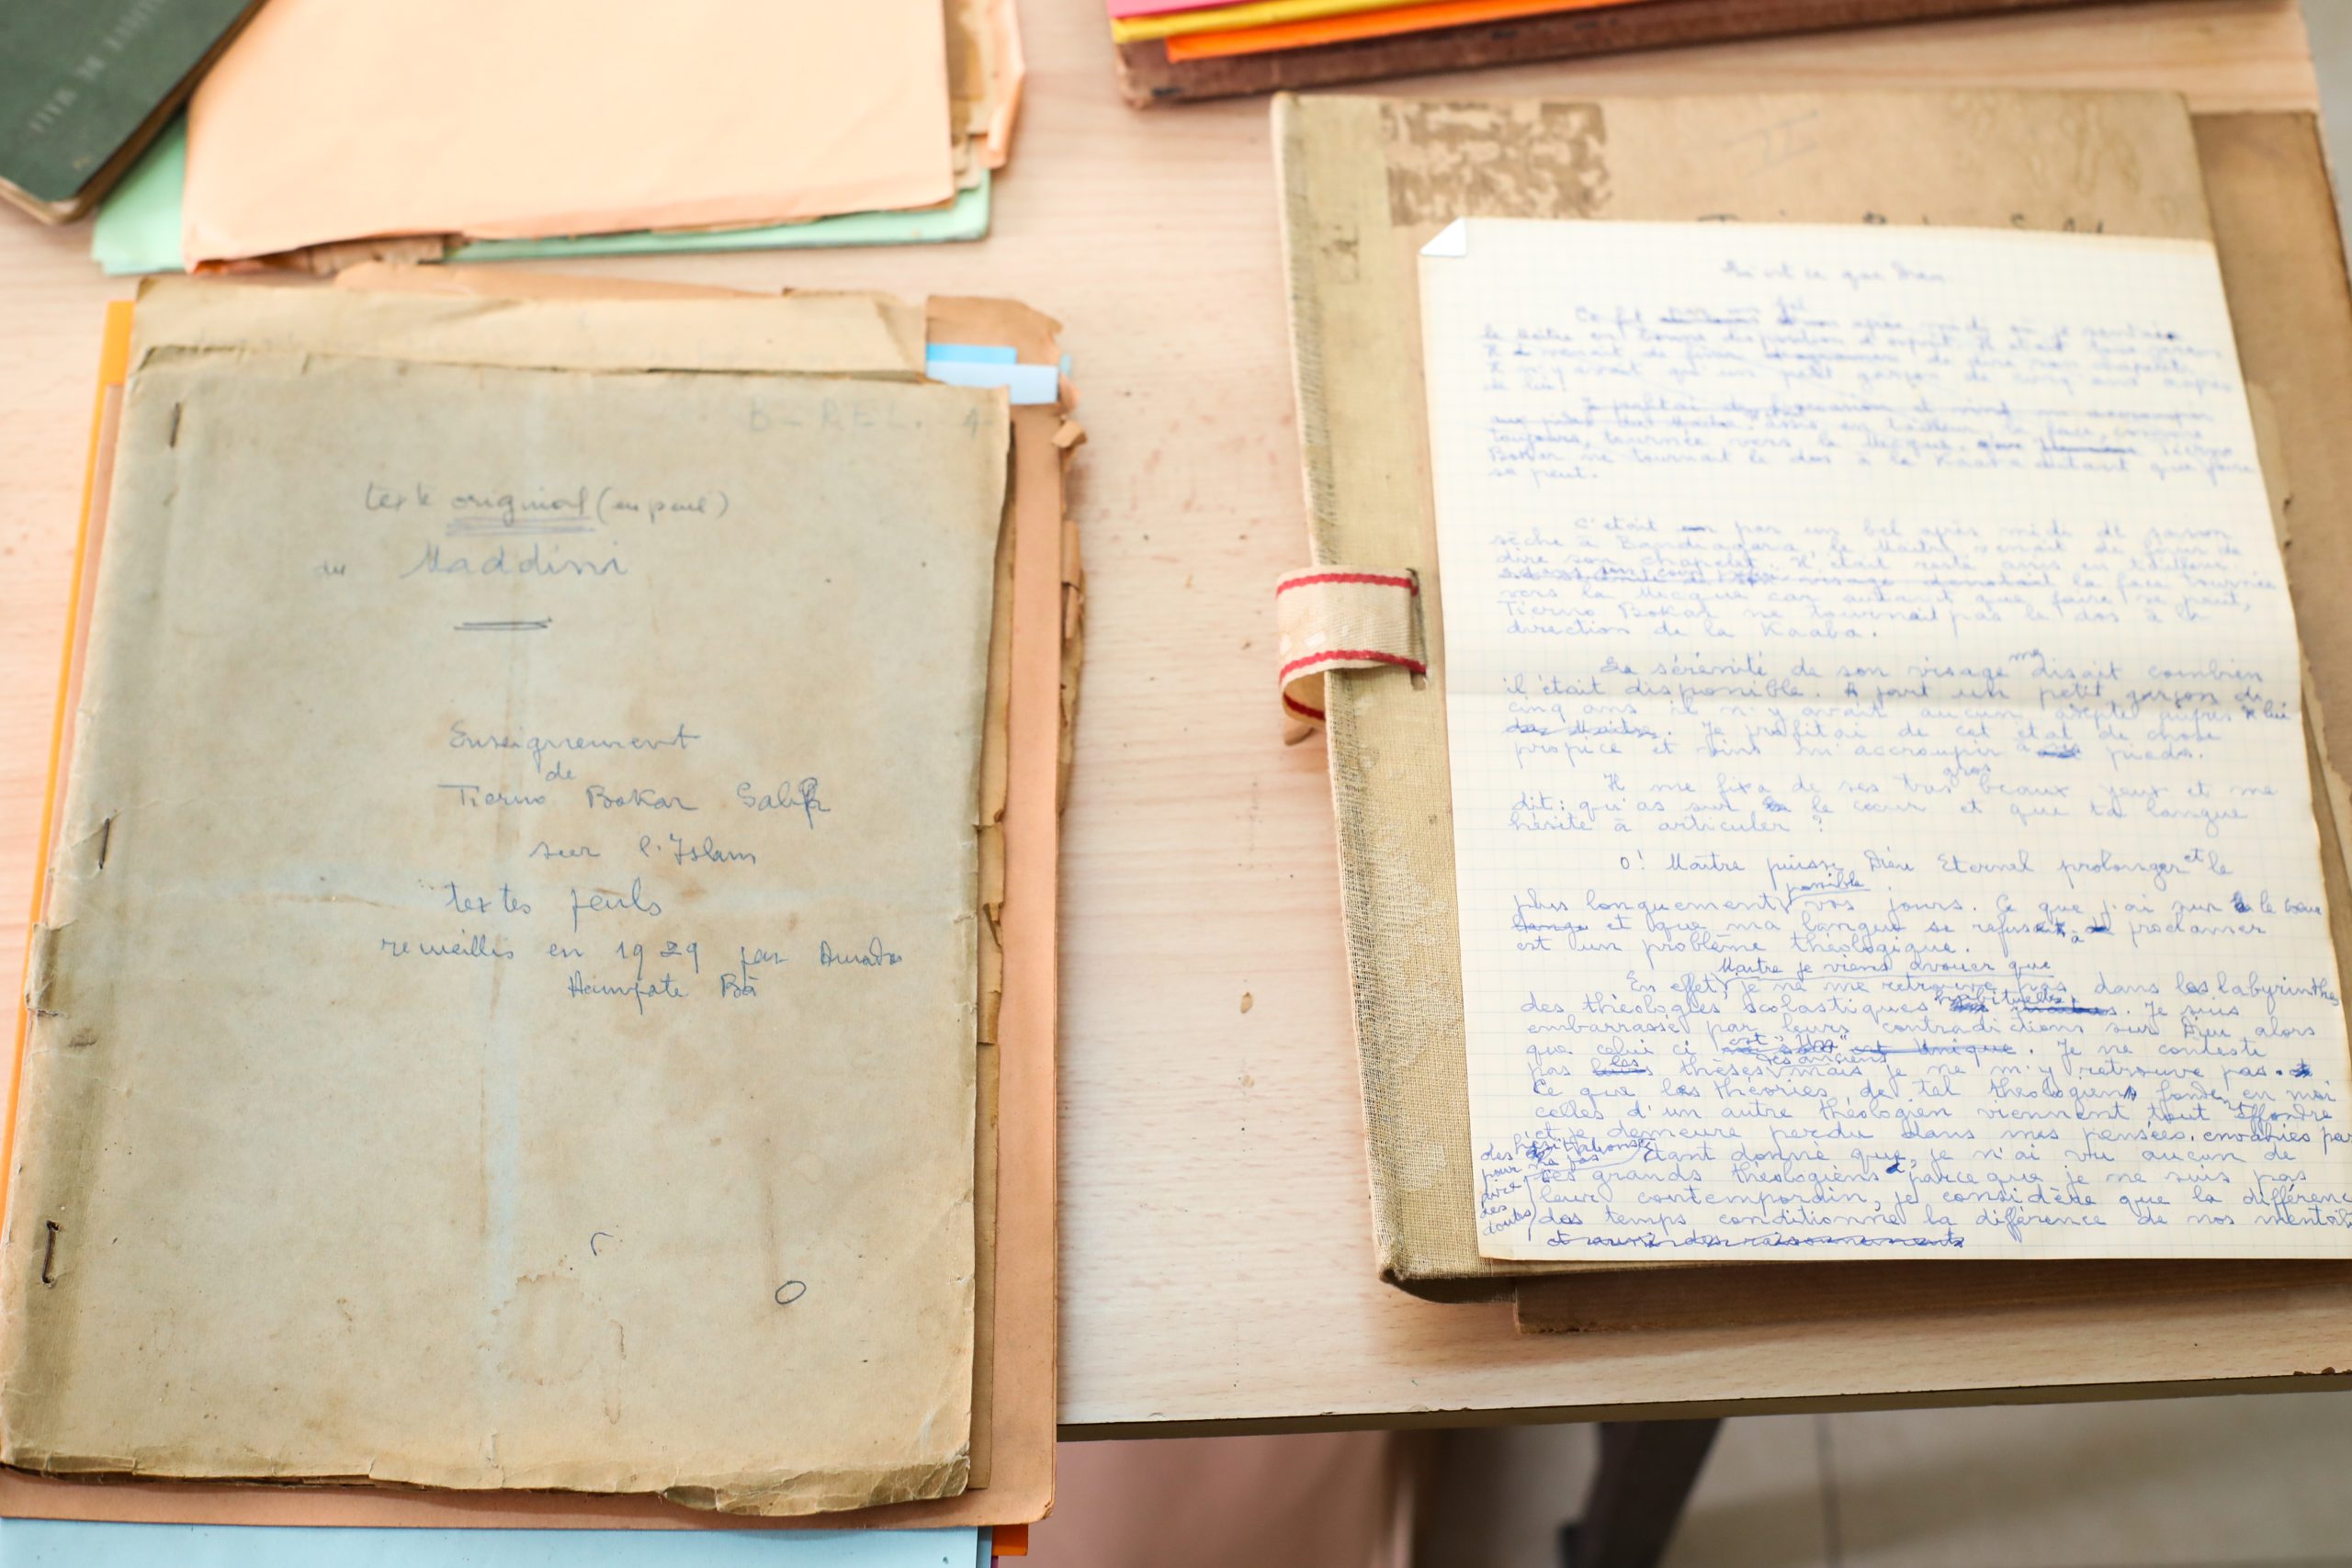 B-REL. 4
texte original (en peul)
du Maddini
Enseignement
de
Tierno Bokar Salif
sur l'Islam
textes peuls
recueillis en 1929 par Amadou
Hampate Bâ
Qu'est ce que Dieu
Ce fut par un après midi où je sentais
le Maître en bonne disposition d'esprit. Il était
Il venait de finir de dire son chapelet.
Il n'y avait qu'un petit garçon de cinq ans auprès
de lui.
Je profitai de et vins m'accroupir
aux pieds du Maître, assis en tailleur, la face, comme
toujours, tournée vers la Mecque, Tierno
Bokar ne tournait le dos à la Kaaba autant que faire
se peut.
C'était par un bel après midi de saison
sèche à Bandiagara, le Maître venait de finir de
dire son chapelet. Il était resté assis en tailleur
visage la face tournée
vers la Mecque car autant que faire se peut,
Tierno Bokar ne tournait pas le dos à la
direction de la Kaaba.
La sérénité de son visage me disait combien
il était disponible. A part un petit garçon de
cinq ans il n'y avait aucun adepte auprès de lui
du Maître. Je profitai de cet état de chose
propice et vins m'accroupir à pieds.
Il me fixa de ses gros beaux yeux et me
dit : qu'as sur le cœur et que ta langue
hésite à articuler ?
O! Maître puisse Dieu Eternel prolonger et le
plus longuement possible vos jours. Ce que j'ai sur le cœur
langue et que ma langue se refuse à proclamer
est un problème théologique.
Maître je viens avouer que
En effet, je ne me retrouve pas dans les labyrinthes
des théologies scolastiques habituelles. Je suis
embarrassé par leurs contradictions sur Dieu alors
que celui ci est "Un" est Unique. Je ne conteste
pas les thèses des anciens mais je ne m'y retrouve pas.
Ce que les théories de tel théologien fonde en moi
celles d'un autre théologien viennent tout effondre
et je demeure perdu dans mes pensées envahies par
des hésitations pour ne pas dire des doutes
Etant donné que je n'ai vu aucun de
ces grands théologiens parce que je ne suis pas
leur contemporain, je considère que la différence
des temps conditionne la différence de nos
et aussi des raisonnements